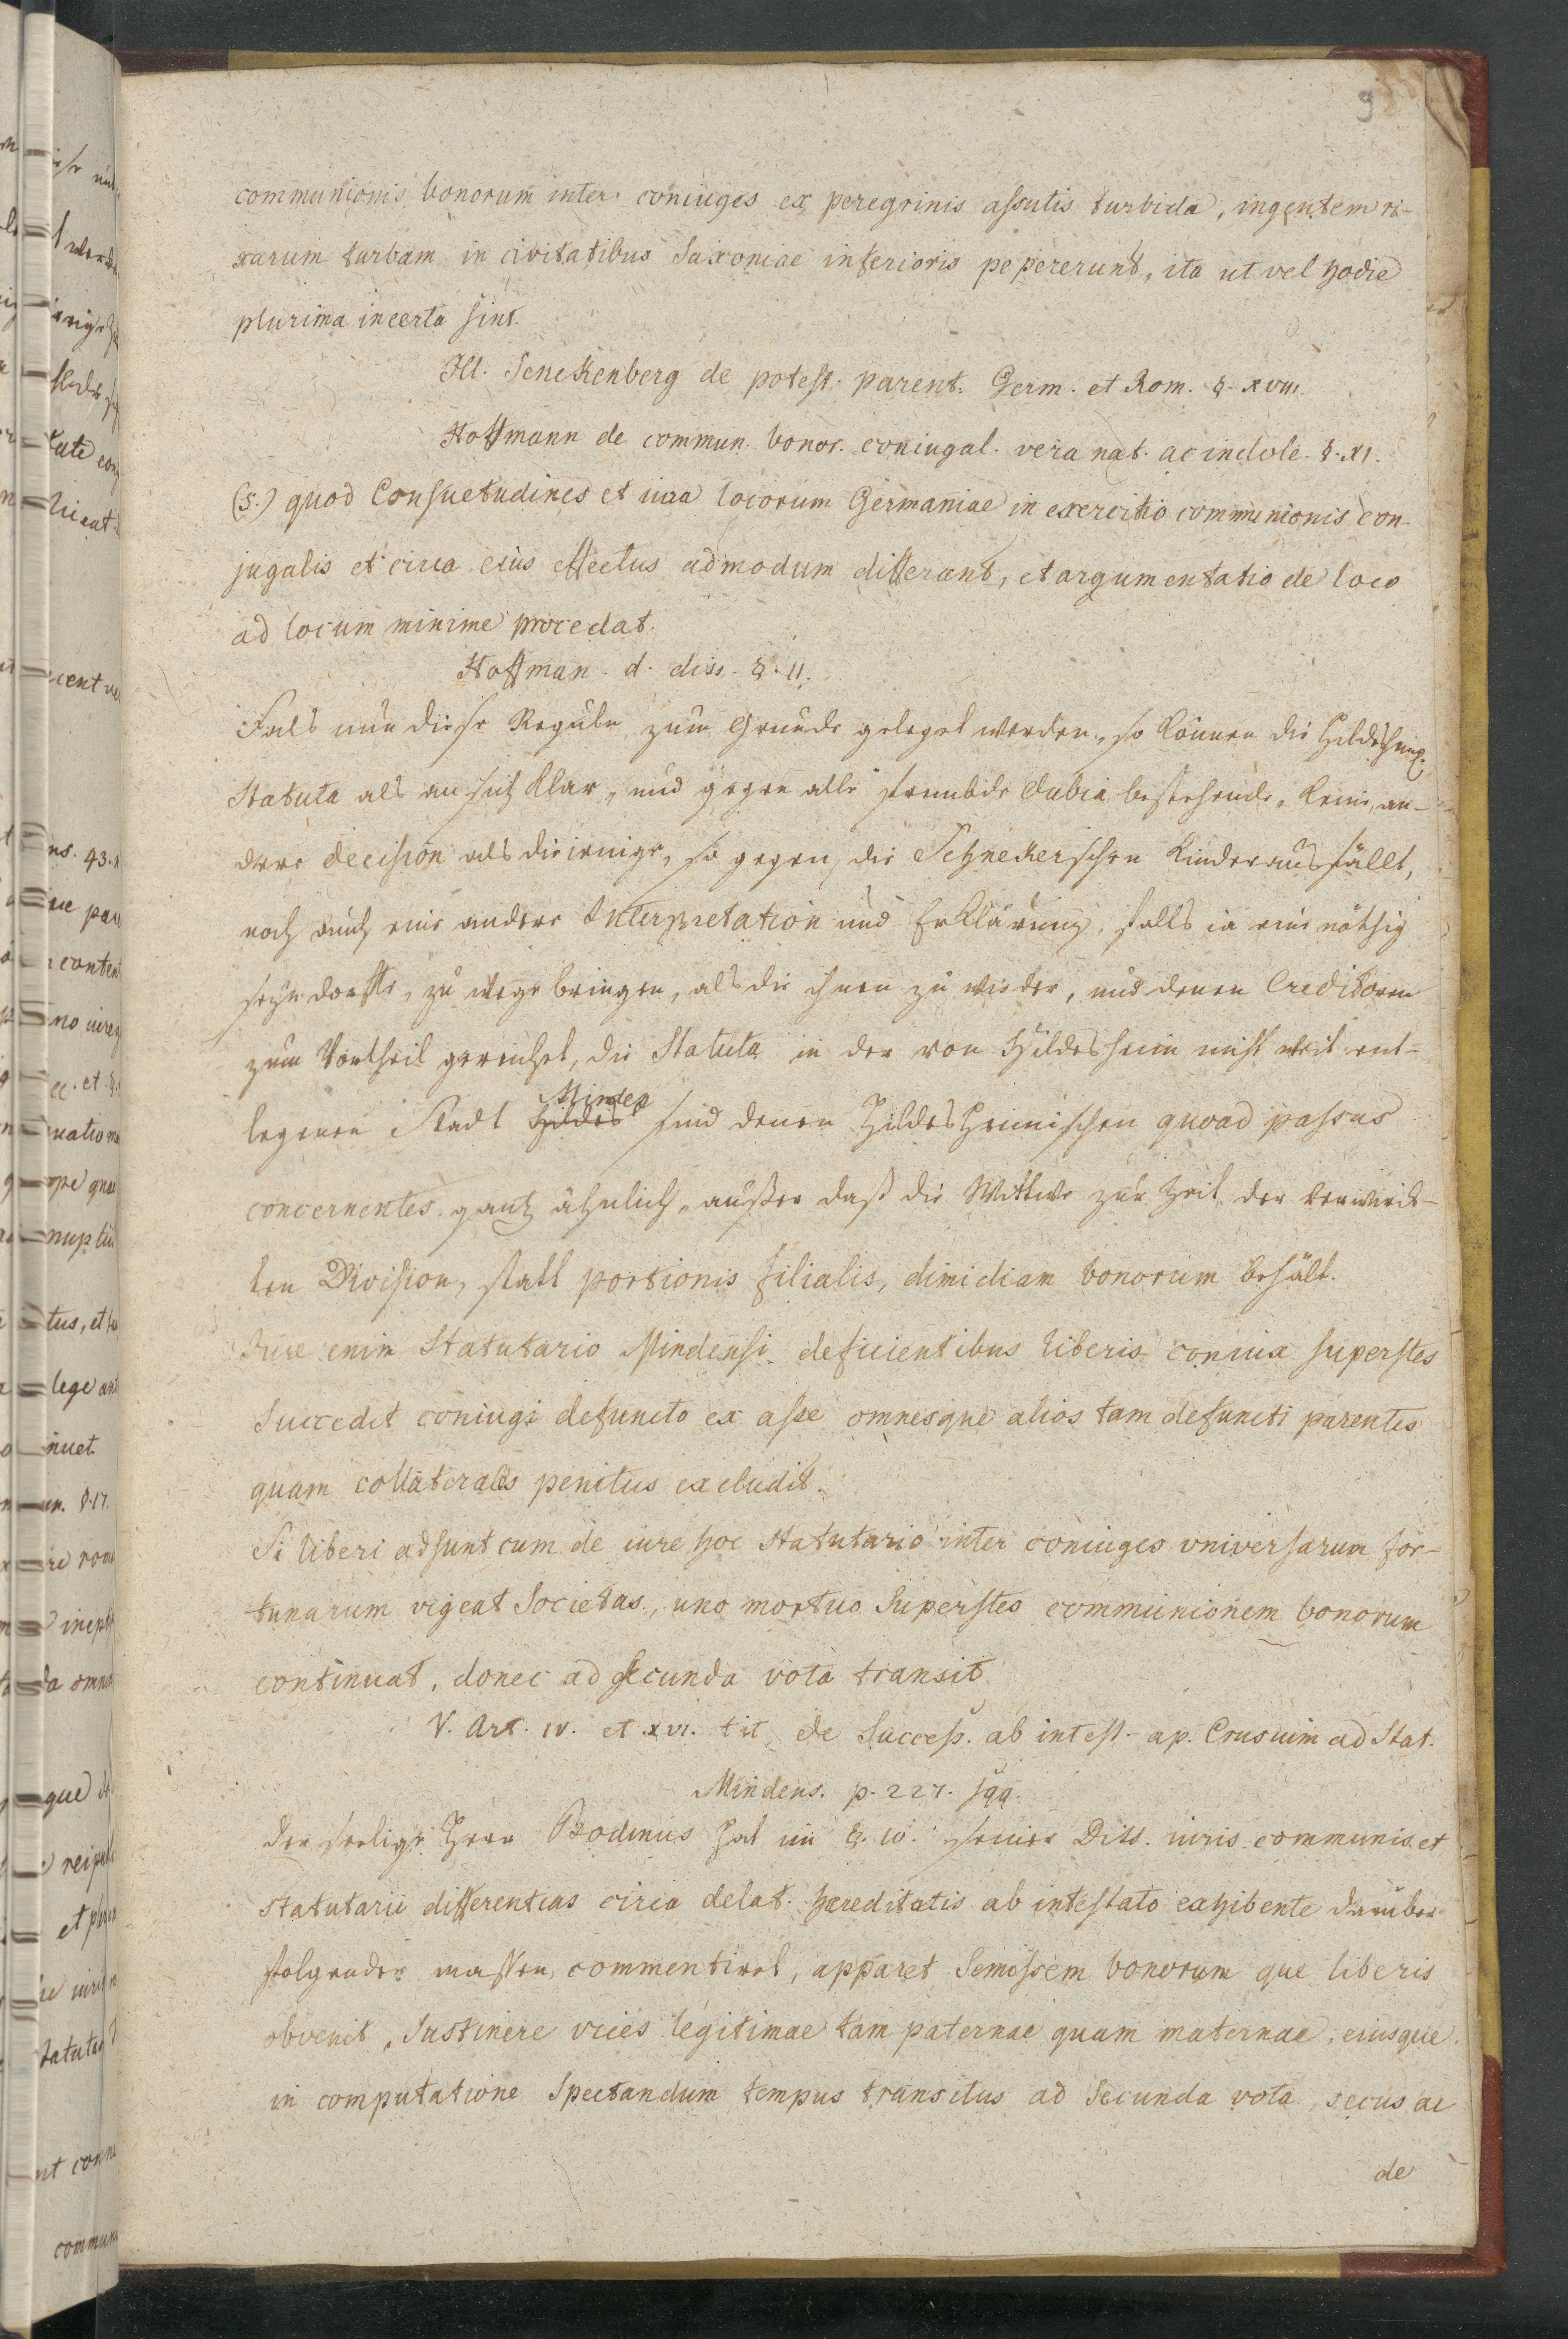 9
communionis bonorum inter coniuges ex peregrinis assutis turbida, ingentem ri-
xarum turbam in civitatibus Saxoniae inferioris pepererunt, ita ut vel hodie
plurima incerta sint.
Ill. Senckenberg de potest. parent. Germ. et Rom. §. XVIII.
Hoffmann de commun. bonor. coniugal. vera nat. ac indole. §. XI.
(5.) quod Consuetudines et iura locorum Germaniae in exercitio communionis con-
jugalis et circa eius effectus admodum differant, et argumentatio de loco
ad locum minime procedat.
Hoffman. d. diss. §. 11.
Fals nun diese Reguln zum Grunde geleget werden, so können die Hildesheim.
Statuta als an sich klar, und gegen alle frembde dubia bestehende, keine an-
dere decision als dieienige, so gegen die Schnekerschen Kinder ausfällt,
noch auch eine andere Interpretation und Erklärung, falls ia eine nöthig
seyn dorffte, zu wege bringen, als die ihnen zu wieder, und denen Creditoren
zum Vortheil gereichet, die Statuta in der von Hildesheim nicht weit ent-
legenen Stadt Hildes Minden sind denen Hildesheimischen quoad passus
concernentes gantz ähnlich, außer daß die Wittwe zur Zeit der verwirck-
ten Division, statt portionis filialis, dimidiam bonorum behält.
Iure enim Statutario Mindensi deficientibus liberis coniux superstes
Succedit coniugi defuncto ex asse omnesque alios tam defuncti parentes
quam collaterales penitus excludit.
Si liberi adsunt cum de iure hoc statutario inter coniuges vniversarum for-
tunarum vigeat Societas, uno mortuo Superstes communionem bonorum
continuat, donec ad secunda vota transit.
V. Art. IV. et XVI. tit. de Success. ab intest. ap. Crusium ad Stat.
Mindens. p. 227. sqq.
Der seelige Herr Bodinus hat im §. 10. seiner Diss. iuris communis et
statutarii differentias circa delat. haereditatis ab intestato exhibente darüber
folgender massen commentiret, apparet Semissem bonorum que liberis
obvenit, Sustinere vices legitimae tam paternae quam maternae, eiusque
in computatione Spectandum tempus transitus ad Secunda vota, secus ac
de